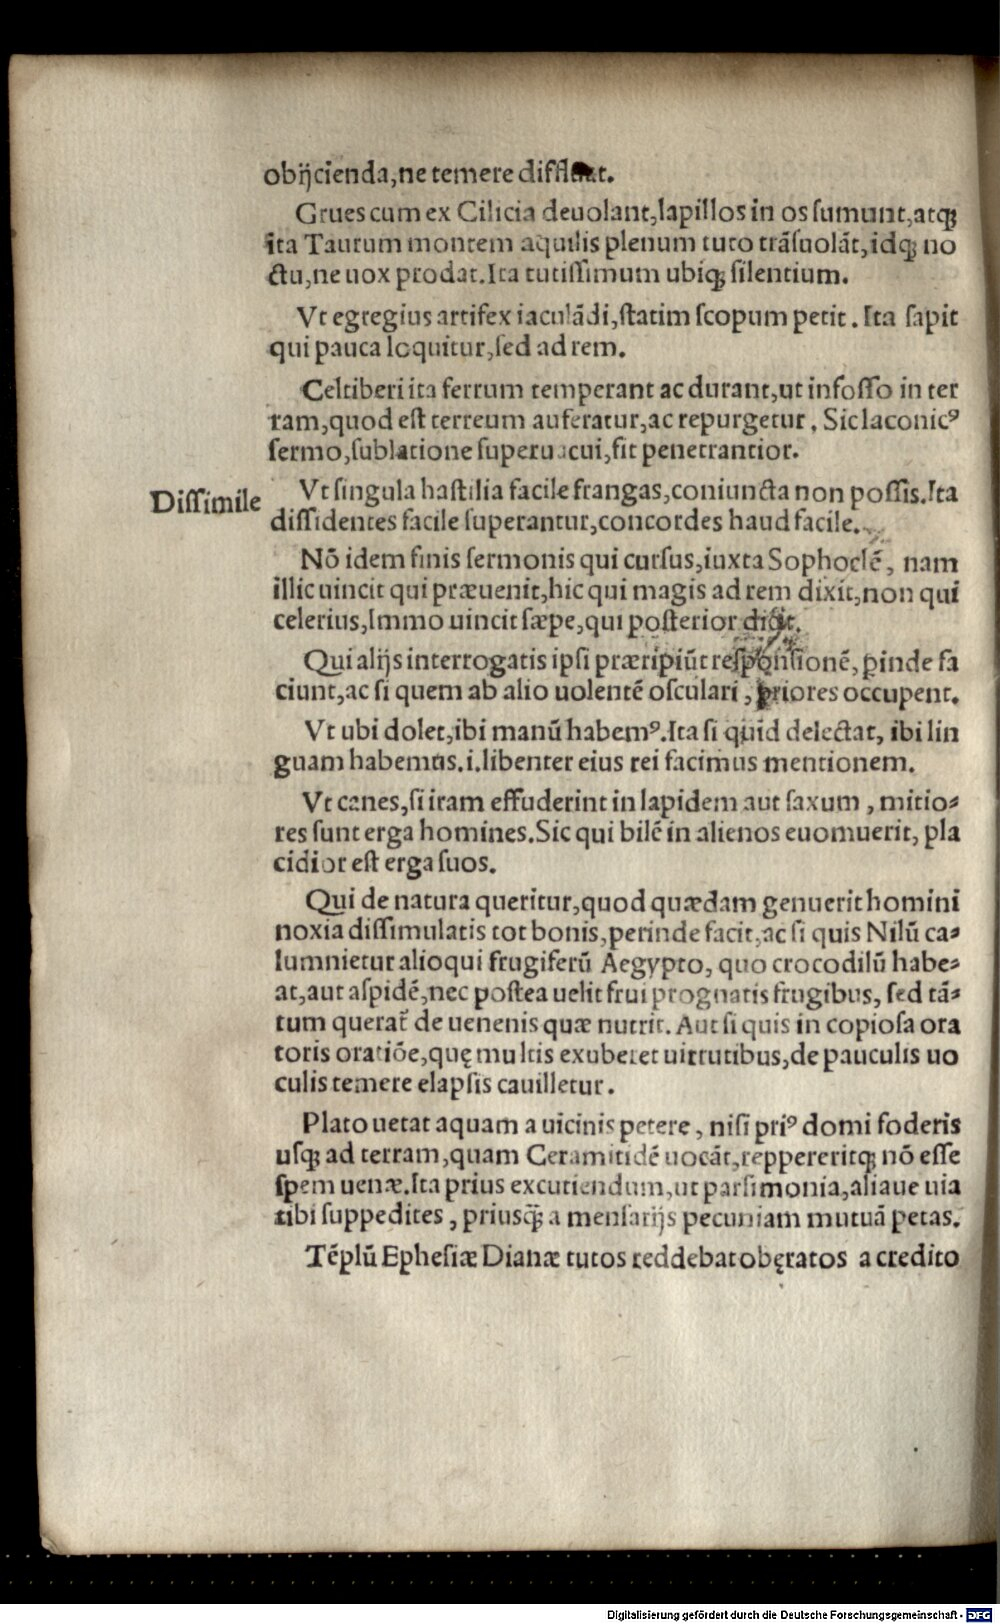 obijcienda,ne temere diffluat.
Grues cum ex Cilicia deuolant,lapillos in os sumunt,atq;
ita Taurum montem aquilis plenum tuto trãsuolãt,idq; no
ctu,ne uox prodat.Ita tutissimum ubiq; silentium.
Vt egregius artifex iaculãdi,statim scopum petit. Ita sapit
qui pauca loquitur,sed ad rem.
Celtiberi ita ferrum temperant ac durant,ut infosso in ter
ram,quod est terreum auferatur,ac repurgetur. Sic laconicꝰ
sermo,sublatione superuacui,fit penetrantior.
Dissimile
Vt singula hastilia facile frangas,coniuncta non possis.Ita
dissidentes facile superantur,concordes haud facile.
Nõ idem finis sermonis qui cursus,iuxta Sophoclẽ, nam
illic uincit qui præuenit,hic qui magis ad rem dixit,non qui
celerius,Immo uincit sæpe,qui posterior dicit.
Qui alijs interrogatis ipsi præripiũt responsionẽ, ꝑinde fa
ciunt,ac si quem ab alio uolentẽ osculari, priores occupent.
Vt ubi dolet,ibi manũ habemꝰ.Ita si quid delectat, ibi lin
guam habemus.i.libenter eius rei facimus mentionem.
Vt canes,si iram effuderint in lapidem aut saxum, mitio-
res sunt erga homines.Sic qui bilẽ in alienos euomuerit, pla
cidior est erga suos.
Qui de natura queritur,quod quædam genuerit homini
noxia dissimulatis tot bonis,perinde facit,ac si quis Nilũ ca-
lumnietur alioqui frugiferũ Aegypto, quo crocodilũ habe-
at,aut aspidẽ,nec postea uelit frui prognatis frugibus, sed tã-
tum querat̃ de uenenis quæ nutrit. Aut si quis in copiosa ora
toris oratiõe,quę multis exuberet uirtutibus,de pauculis uo
culis temere elapsis cauilletur.
Plato uetat aquam a uicinis petere, nisi priꝰ domi foderis
usq; ad terram,quam Ceramitidẽ uocãt,reppereritq; nõ esse
spem uenæ.Ita prius excutiendum,ut parsimonia,aliaue uia
tibi suppedites, priusq̃ a mensarijs pecuniam mutuã petas.
Tẽplũ Ephesiæ Dianæ tutos reddebat obęratos a credito
Digitalisierung gefördert durch die Deutsche Forschungsgemeinschaft - DFG